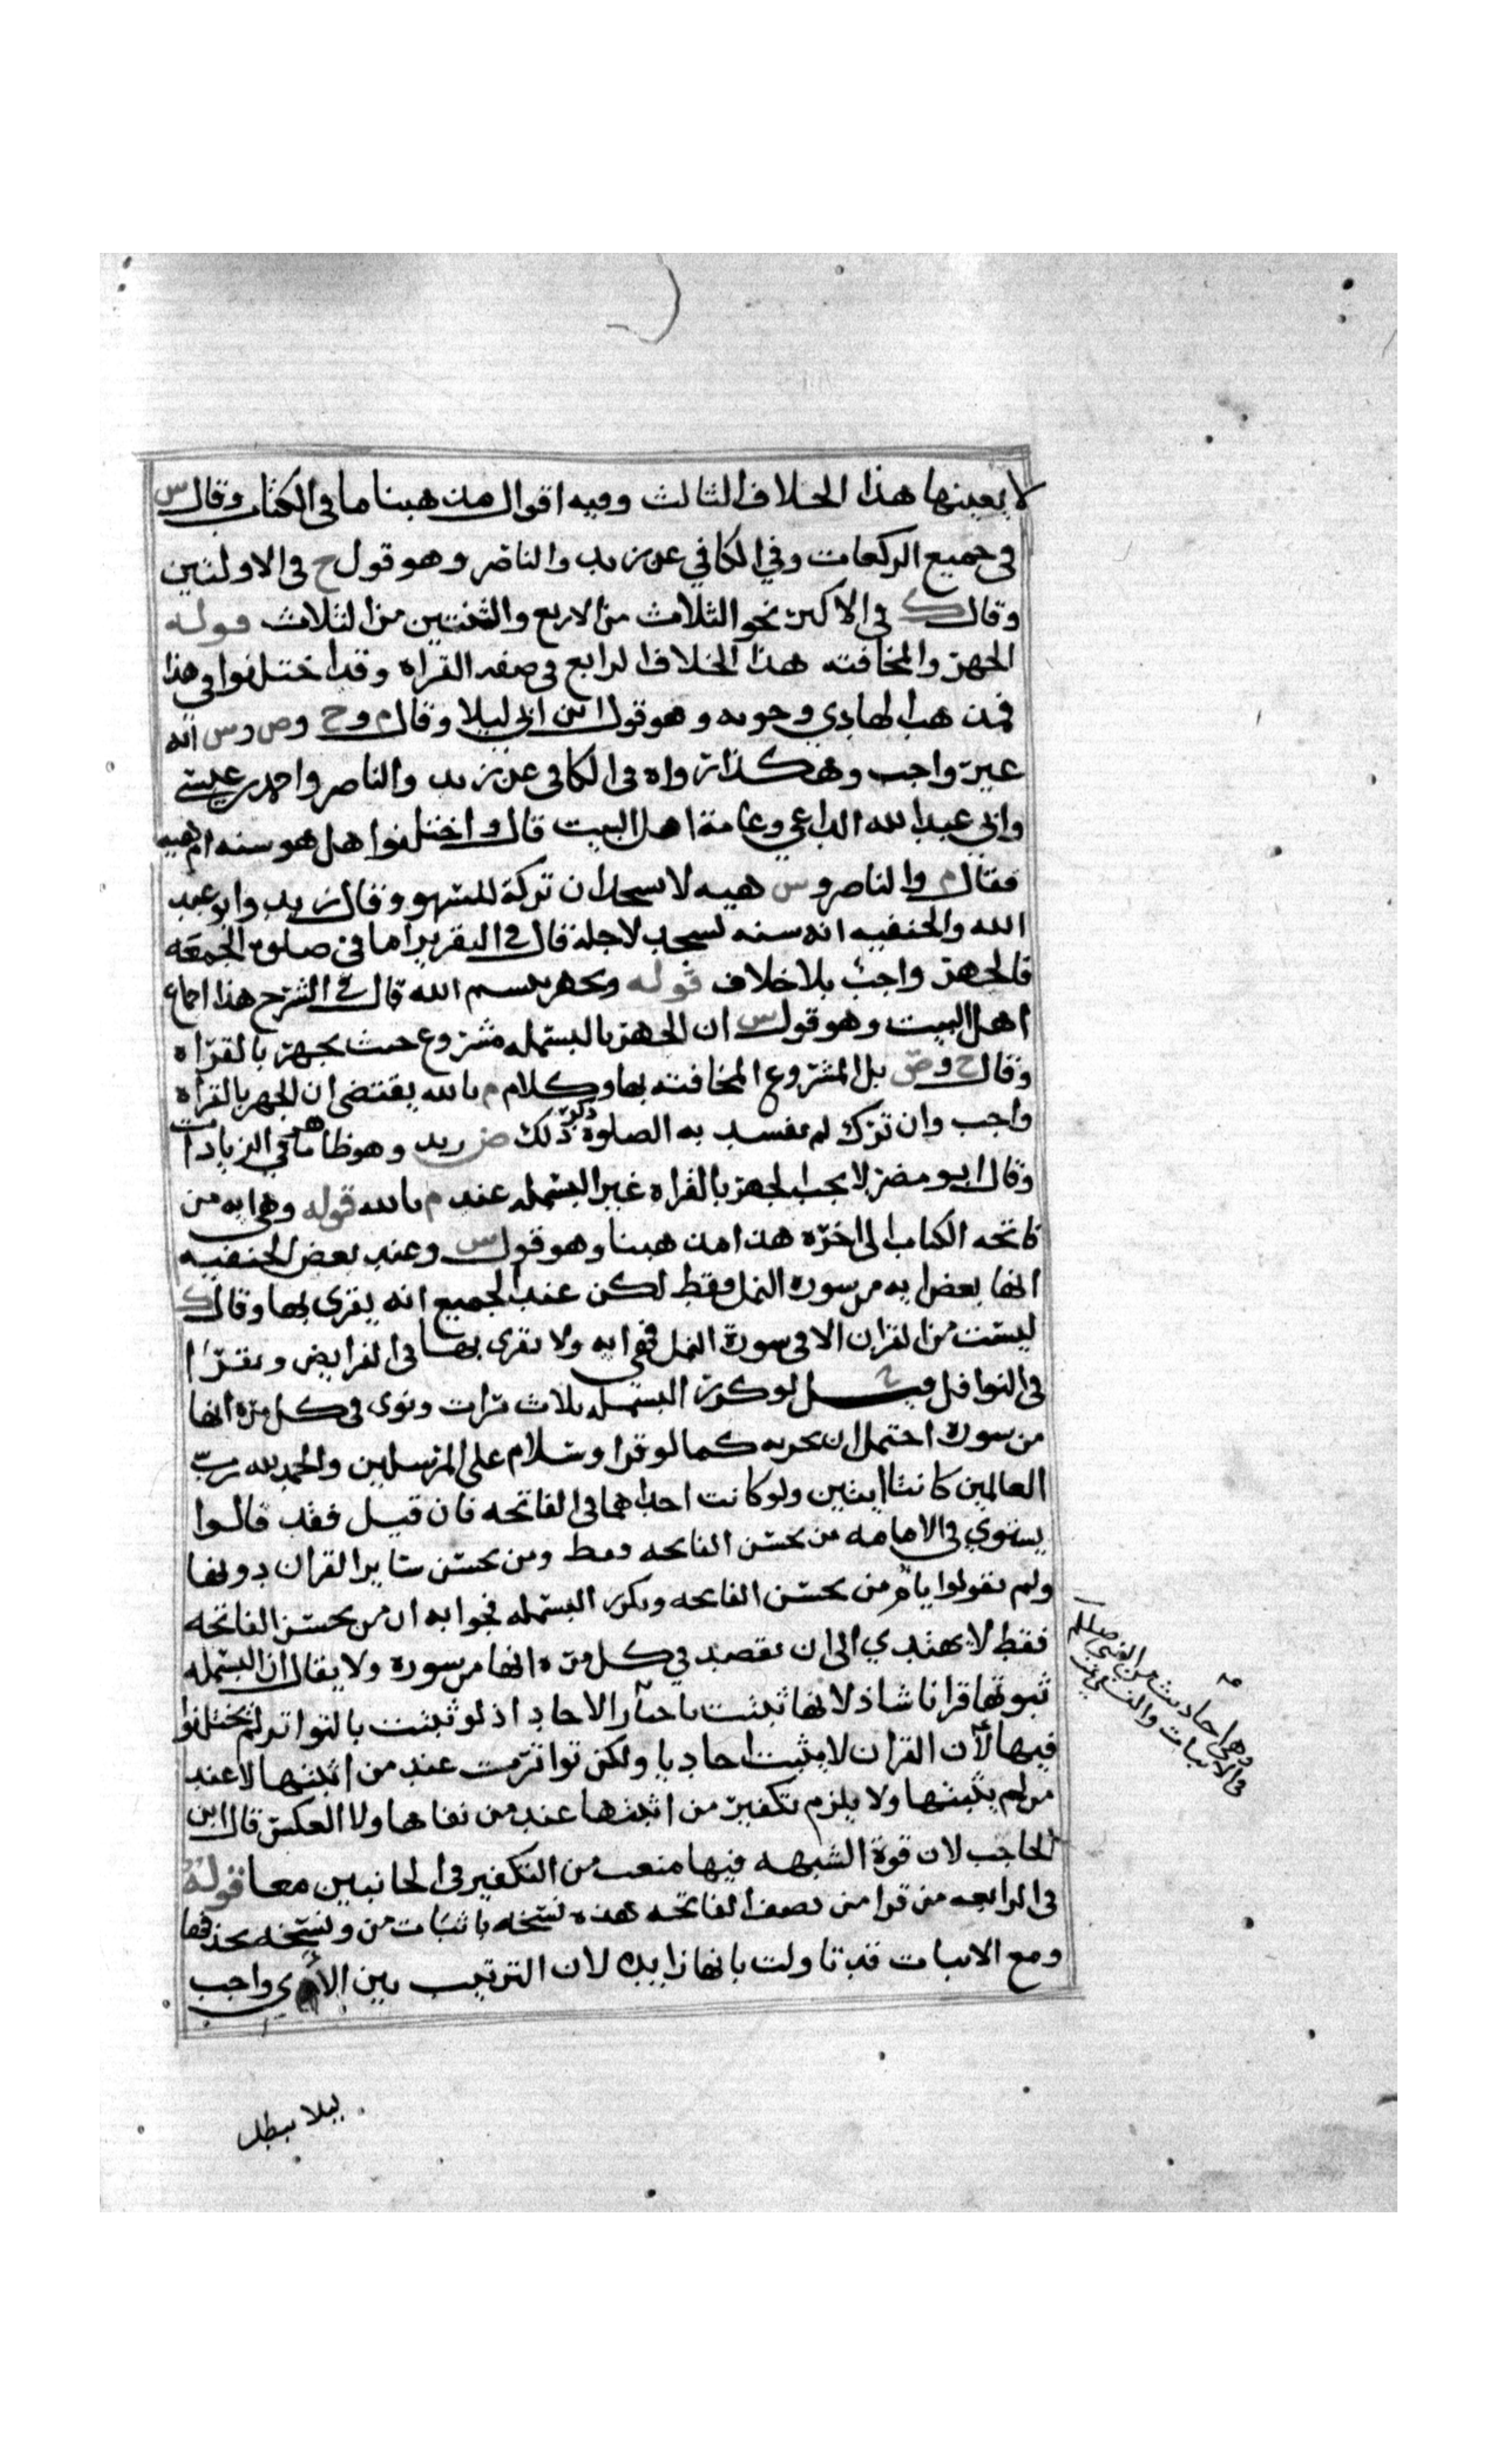 لا بعينها هذا الخلاف الثالث وفيه اقوال مذهبنا ما في الكتاب وقال س
في جميع الركعات وفي الكافي عن زيد والناصر وهو قول ح في الاولتين
وقال ك في الاكثر نحو الثلاث من الاربع والثنتين من الثلاث قوله
الجهر والمخافته هذا الخلاف الرابع في صفه القراه وقد اختلفوا في هذا
فمذهب الهادي وجوبه وهو قول ابن ابي ليلا وقال م وح وص وس انه
غير واجب وهكذا رواه في الكافي عن زيد والناصر واحمد بن عيسى
وابي عبدالله الداعي وعامة اهل البيت قال واختلفوا هل هو سنه ام هيه
فقال م والناصر وس هيه لا يسجد ان تركه للسهو وقال زيد وابو عبد
الله والحنفيه انه سنه تسجد لاجله قال في التقرير اما في صلوة الجمعه
فالجهر واجب بلا خلاف قوله ويجهر ببسم الله قال في الشرح هذا اجماع
اهل البيت وهو قول س ان الجهر بالبسمله مشروع حيث يجهر بالقراه
وقال ح وص بل المشروع المخافته بها وكلام م بالله يقتضي ان الجهر بالقراه
واجب وان ترك لم تفسد به الصلوة ذكر ذلك ض زيد وهو ظاهر ما في الزيادات
وقال ابو مضر لا يجب الجهر بالقراه غير البسمله عند م بالله قوله وهي ايه من
فاتحه الكتاب الى اخره هذا مذهبنا وهو قول س وعند بعض الحنفيه
انها بعض ايه من سوره النمل فقط لكن عند الجميع انه يقرى بها وقال ك
ليست من القران الا في سورة النمل فهي ايه ولا يقرى بها في الفرايض ويقرا
في النوافل قيل لو كرر البسمله ثلاث مرات ونوى في كل مره انها
من سوره احتمل ان يجزيه كما لو قرا وسلام على المرسلين والحمد لله رب
العالمين كانتا ايتين ولو كانت احداهما في الفاتحه فان قيل فقد قالوا
يستوي في الامامه من يحسن الفاتحه فقط ومن يحسن ساير القران دونها
ولم يقولوا يام من يحسن الفاتحه ويكرر البسمله فجوابه ان من يحسن الفاتحه
فقط لا يهتدي الى ان يقصد في كل مره انها من سوره ولا يقال ان البسمله
ثبوتها قرانا شاذ لانها ثبتت باخبار الاحاد اذ لو ثبتت بالتواتر لم يختلفوا
فيها لان القران لا يثبت احاديا ولكن تواترت عند من اثبتها لا عند
من لم يثبتها ولا يلزم تكفير من اثبتها عند من نفاها ولا العكس قال ابن
الحاجب لان قوة الشبهه فيها منعت من التكفير في الجانبين معا قوله
في الرابعه من قرا من نصف الفاتحه هذه نسخه باثبات من ونسخه بحذفها
ومع الاثبات قد تاولت بانها زايده لان الترتيب بين الآي واجب
ليلا يبطل
وهي احاديث من النبي صللم
في الاثبات والنفي